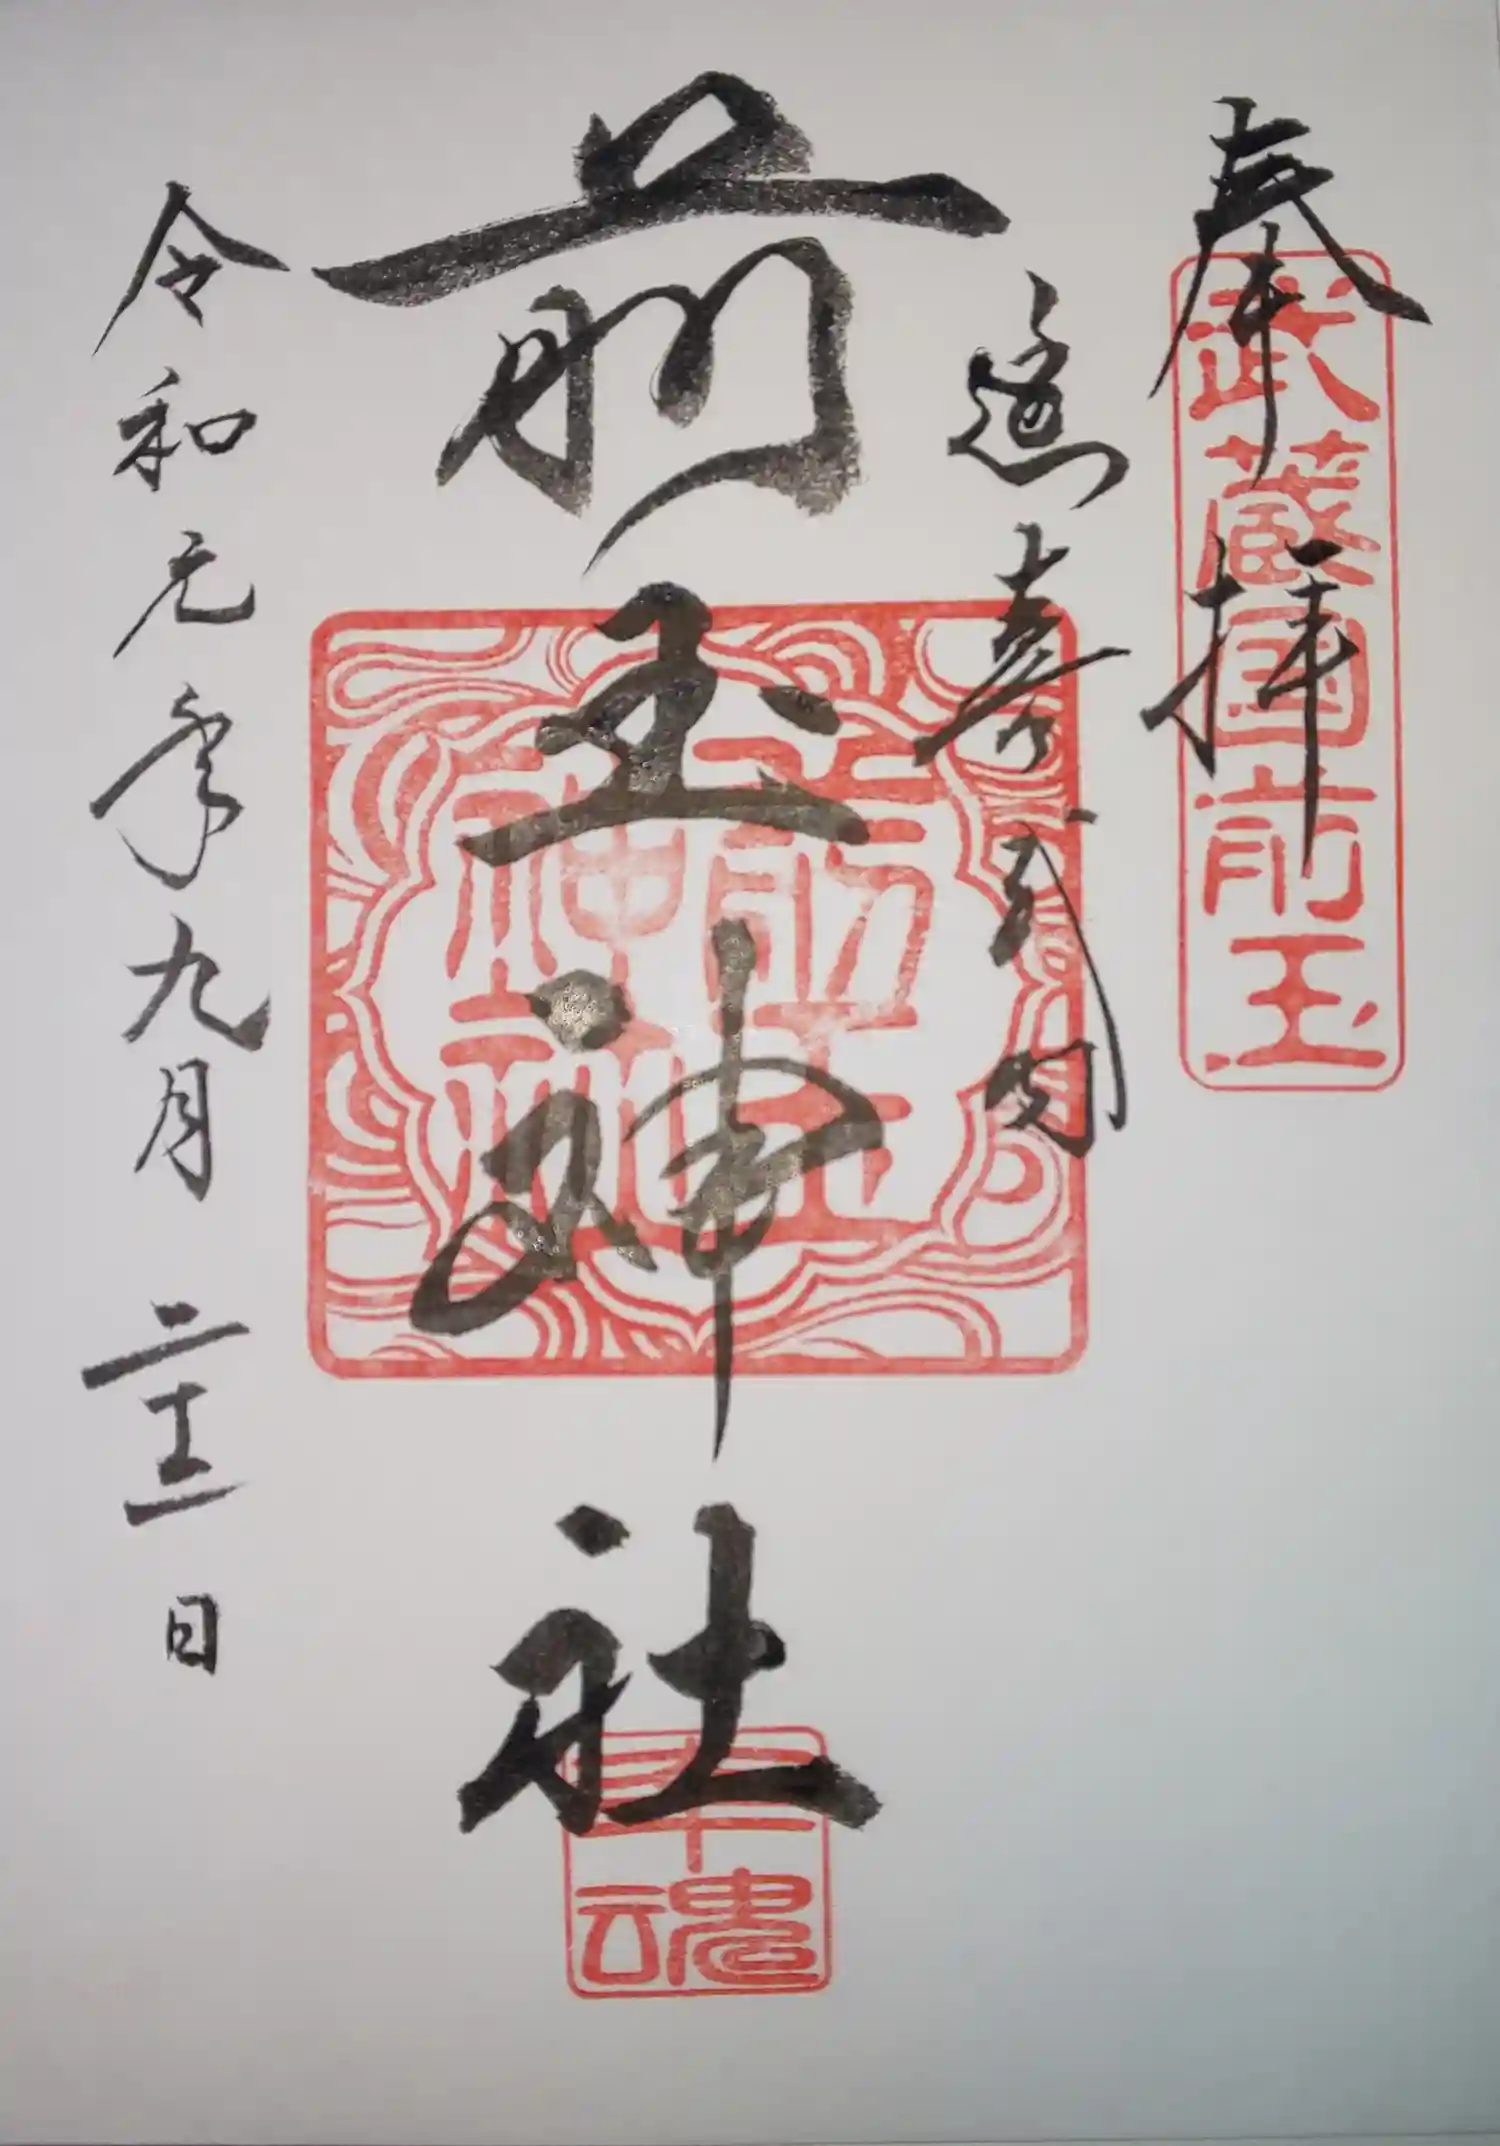 奉拝
武蔵國前玉
延喜式内
前玉神社
前玉神社
幸魂
令和元年九月二十二日